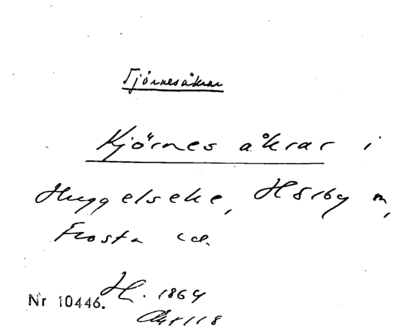 Tjörnesåkrar
Kjörnes åkrar i
Huggelseke, Hörby sn,
Frosta hd.
Nr 10446. H. 1864
Akt 118